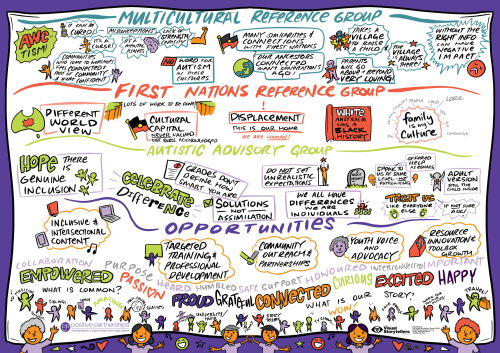 MULTICULTURAL REFERENCE GROUP
AWE
TISM!
IT CAN BE
CURED!
IT'S A
CURSE!
LACK OF
STRENGTH,
NO WORD FOR
AUTISM
IN THESE
CULTURES
MANY SIMILARITIES &
CONNECTIONS
WITH FIRST NATIONS
OUR ANCESTORS
CONNECTED
MANY GENERATIONS
AGO!
TAKES A
VILLAGE
TO RAISE
A CHILD
THE
VILLAGE
IS
ALWAYS
THERE!
PARENTS
WILL GO
ABOVE & BEYOND
VERY LOVING
WITHOUT
THE RIGHT
INFO
CAN HAVE
NEGATIVE
IMPACT
FIRST NATIONS REFERENCE GROUP
DIFFERENT
WORLD
VIEW
LOTS OF WORK TO BE DONE
CULTURAL
CAPITAL
NEVER VALUED
DISPLACEMENT
THIS IS OUR HOME
WE ARE HUMAN!
WHITE
AUSTRALIA
HAS A
BLACK
HISTORY
LORE
family
is our
Culture
LANGUAGE
AUTISTIC ADVISORY GROUP
HOPE THERE
IS
GENUINE
INCLUSION
CELEBRATE
Difference
GRADES DON'T
DEFINE HOW
SMART YOU ARE
SOLUTIONS
NOT
ASSIMILATION
DO NOT SET
UNREALISTIC
EXPECTATIONS
WE ALL HAVE
DIFFERENCES
WE ARE
INDIVIDUALS
SPEAK TO
US AT SAME
LEVEL
OFFERED
FIELD
TRUST US
LIKE EVERYONE
ELSE
ADULT
VERSION
STILL THE
CHILD INSIDE
IF NOT SURE
ASK!
OPPORTUNITIES
INCLUSIVE &
INTERSECTIONAL
CONTENT
TARGETED
TRAINING &
PROFESSIONAL
DEVELOPMENT
COMMUNITY
OUTREACH &
PARTNERSHIPS
YOUTH VOICE
AND
ADVOCACY
RESOURCE
INNOVATION &
TOOLBOX
GROWTH
COLLABORATION
EMPOWERED
PURPOSE
PASSION
HEARD
HUMBLED
SAFE
SUPPORT
HONOURED
CURIOUS
INTERCONNECTED
EXCITED
IMPORTANT
HAPPY
WHAT IS COMMON?
PROUD
GRATEFUL
CONNECTED
WHAT IS OUR STORY?
positive partnerships
Visual
Storytellers